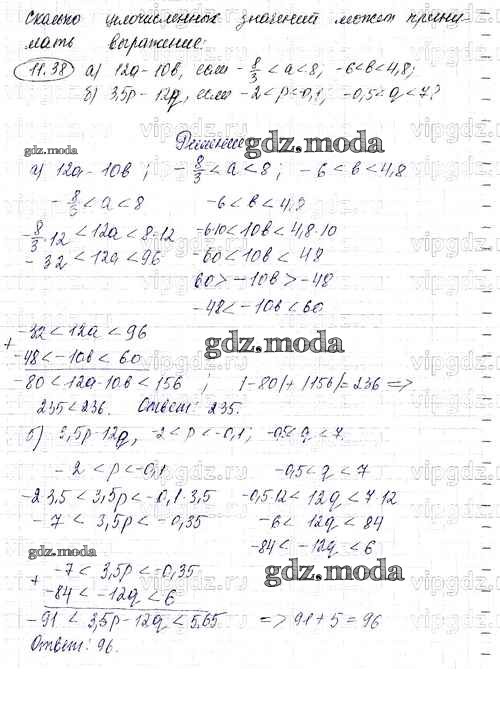 Сколько целочисленных значений может прини-
мать выражение:
11.38 а) 12a-10b, если -8/3<a<8; -6<b<4,8;
б) 3,5p-12q, если -2<p<-0,1, -0,5<q<7?
Решение
gdz.moda
gdz.moda
а) 12a-10b; -8/3<a<8; -6<b<4,8
-8/3<a<8 -6<b<4,8
-8/3·12<12a<8·12 -6·10<10b<4,8·10
-32<12a<96 -60<10b<48
60>-10b>-48
-48<-10b<60
-32<12a<96
gdz.moda
+
-48<-10b<60
-80<12a-10b<156; |-80|+|156|=236 =>
235<236. Ответ: 235.
б) 3,5p-12q, -2<p<-0,1; -0,5<q<7.
-2<p<-0,1 -0,5<q<7
-2·3,5<3,5p<-0,1·3,5 -0,5·12<12q<7·12
-7<3,5p<-0,35 -6<12q<84
-84<-12q<6
gdz.moda
gdz.moda
-7<3,5p<-0,35
+
-84<-12q<6
-91<3,5p-12q<5,65 => 91+5=96
Ответ: 96.